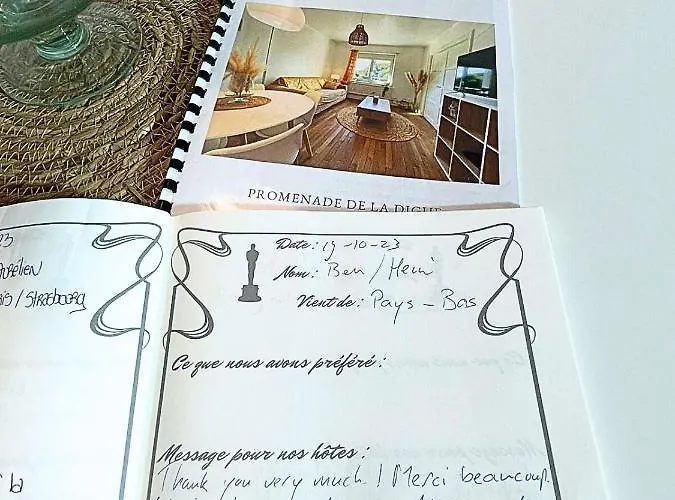 PROMENADE DE LA DIGUE
23
Aurélien
is / Strasbourg
la
Date : 19-10-23
Nom : Ben / Henri
Vient de : Pays - Bas
Ce que nous avons préféré :
Message pour nos hôtes :
Thank you very much ! Merci beaucoup.